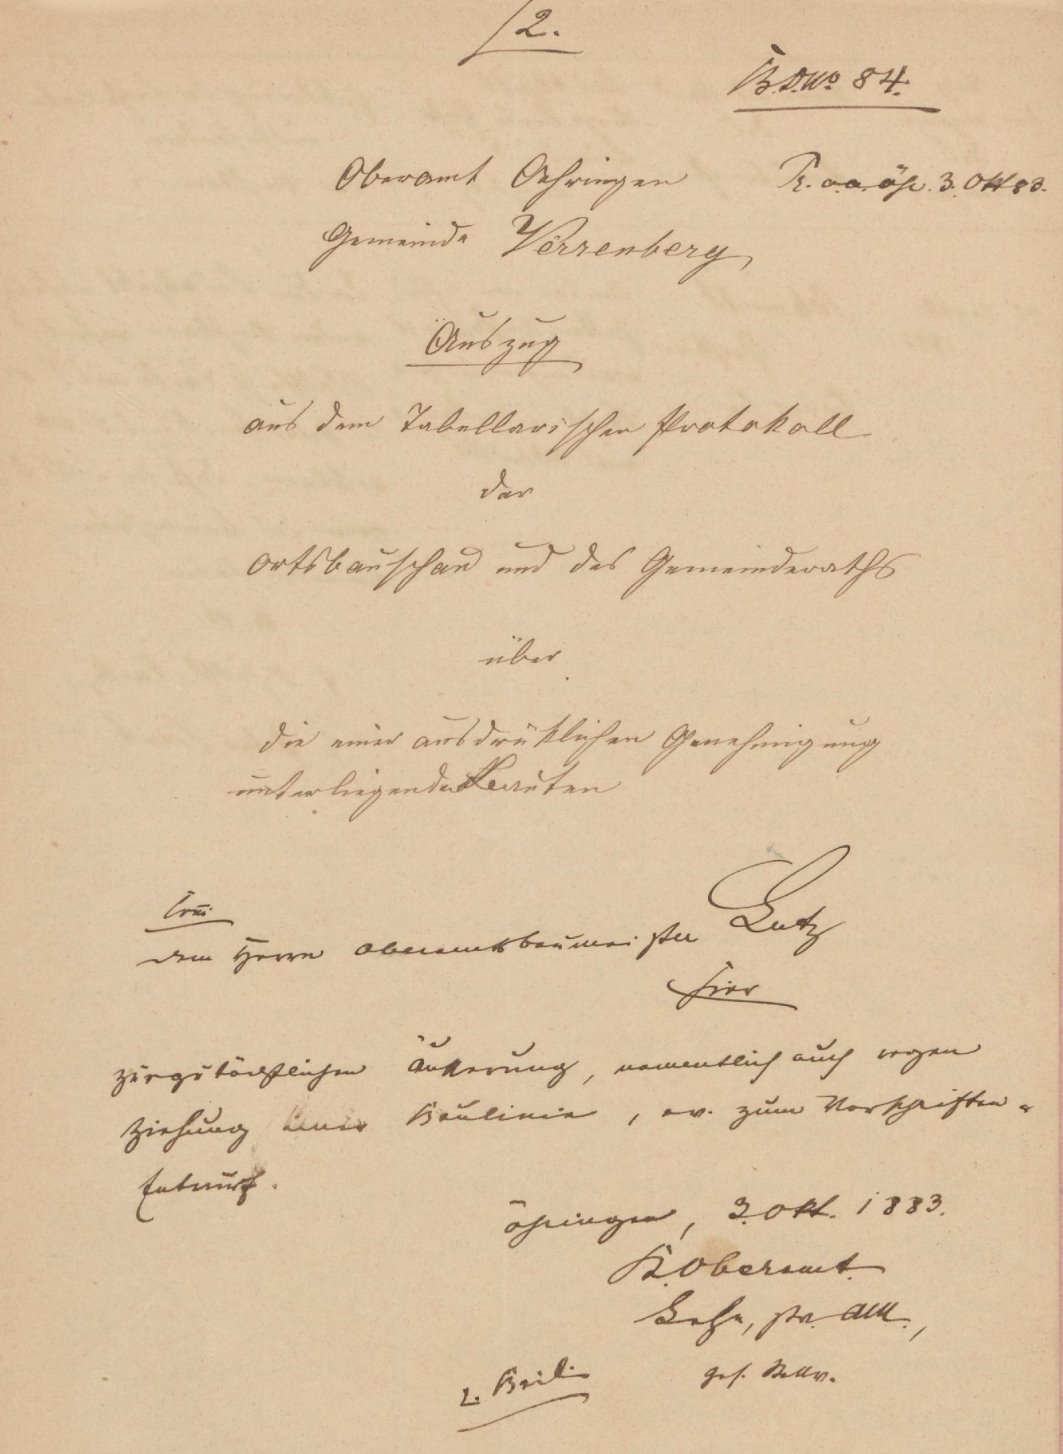 2.
B.D.No 84.
Oberamt Oehringen
Pr. o.a. Öh. 3. Okt 83.
Gemeinde Verrenberg,
Auszug
aus dem Tabellarischen Protokoll
der
Ortsbauschau und des Gemeinderaths
über
die einer ausdrüklichen Genehmigung
unterliegenden Bauten
dem Herrn Oberamtsbaumeister Lutz
hier
zur gutächtlichen Äußerung, namentlich auch wegen
Ziehung einer Baulinie, ev. zum Vorschriften-
Entwurf.
Öhringen, 3. Okt. 1883.
K. Oberamt.
stv. AM.,
2. Beil.
ges.